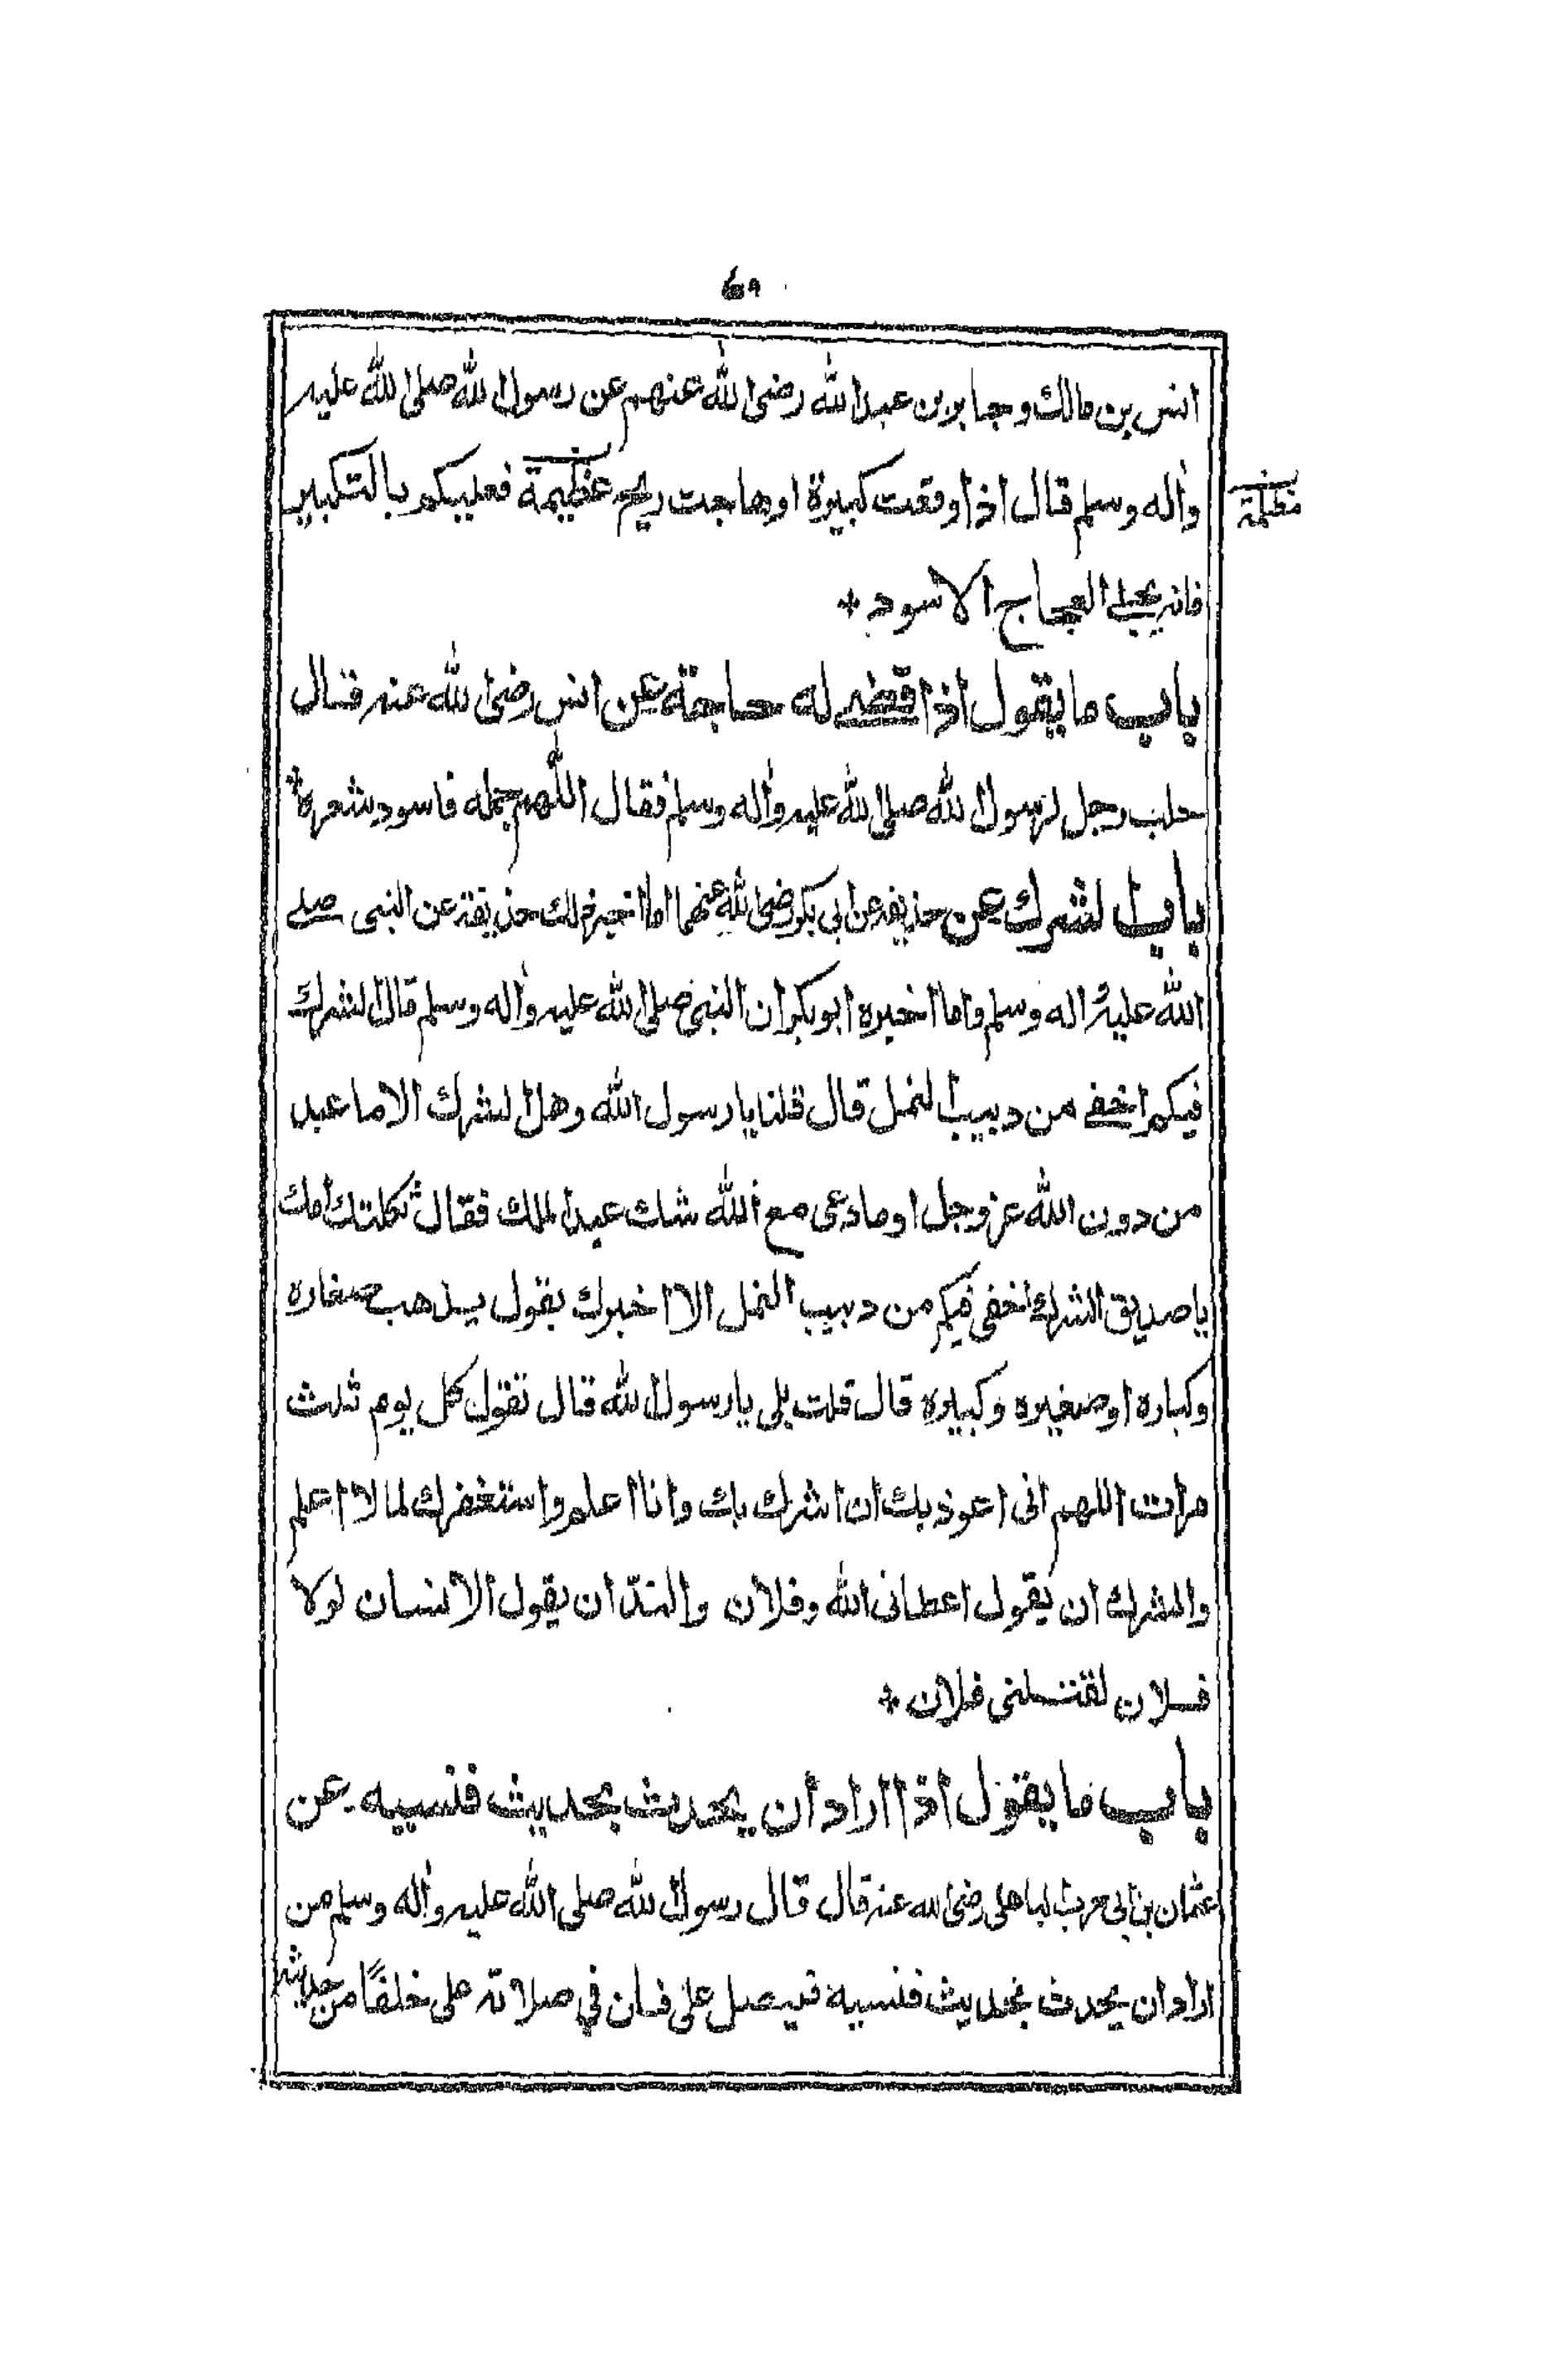 ٤٩
انس بن مالك وجابر بن عبدالله رضى الله عنهم عن رسول الله صلى الله عليه
واٰله وسلم قال اذا وقعت كبيرة او هاجت ريح عظيمة فعليكم بالتكبير
مظلمة
فانه يجلى العجاج الاسود *
باب ما يقول اذا قضى له حاجة عن انس رضى الله عنه قال
حلب رجل لرسول الله صلى الله عليه واٰله وسلم فقال اللّٰهم جمله فاسود شعره *
باب الشرك عن حذيفه عن ابى بكر رضى الله عنهما اما اخبر ذلك حذيفة عن النبى صلى
الله عليه واله وسلم واما اخبره ابو بكر ان النبى صلى الله عليه واٰله وسلم قال الشرك
فيكم اخفى من دبيب النمل قال قلنا يا رسول الله وهل الشرك الا ما عبد
من دون الله عز وجل او ما دعى مع الله شك عبد الملك فقال ثكلتك امك
يا صديق الشرك اخفى فيكم من دبيب النمل الا اخبرك بقول يذهب صغاره
وكباره او صغيره وكبيره قال قلت بلى يا رسول الله قال تقول كل يوم ثلث
مرات اللهم انى اعوذ بك ان اشرك بك وانا اعلم واستغفرك لما لا اعلم
والشرك ان يقول اعطانى الله وفلان والندّ ان يقول الانسان لولا
فلان لقتلنى فلان *
باب ما يقول اذا اراد ان يحدث بحديث فنسيه عن
عثمان بن ابى حرب الباهلى رضى الله عنه قال قال رسول الله صلى الله عليه واٰله وسلم من
اراد ان يحدث بحديث فنسيه فليصل على فان في صلاته على خلفًا من حديثه